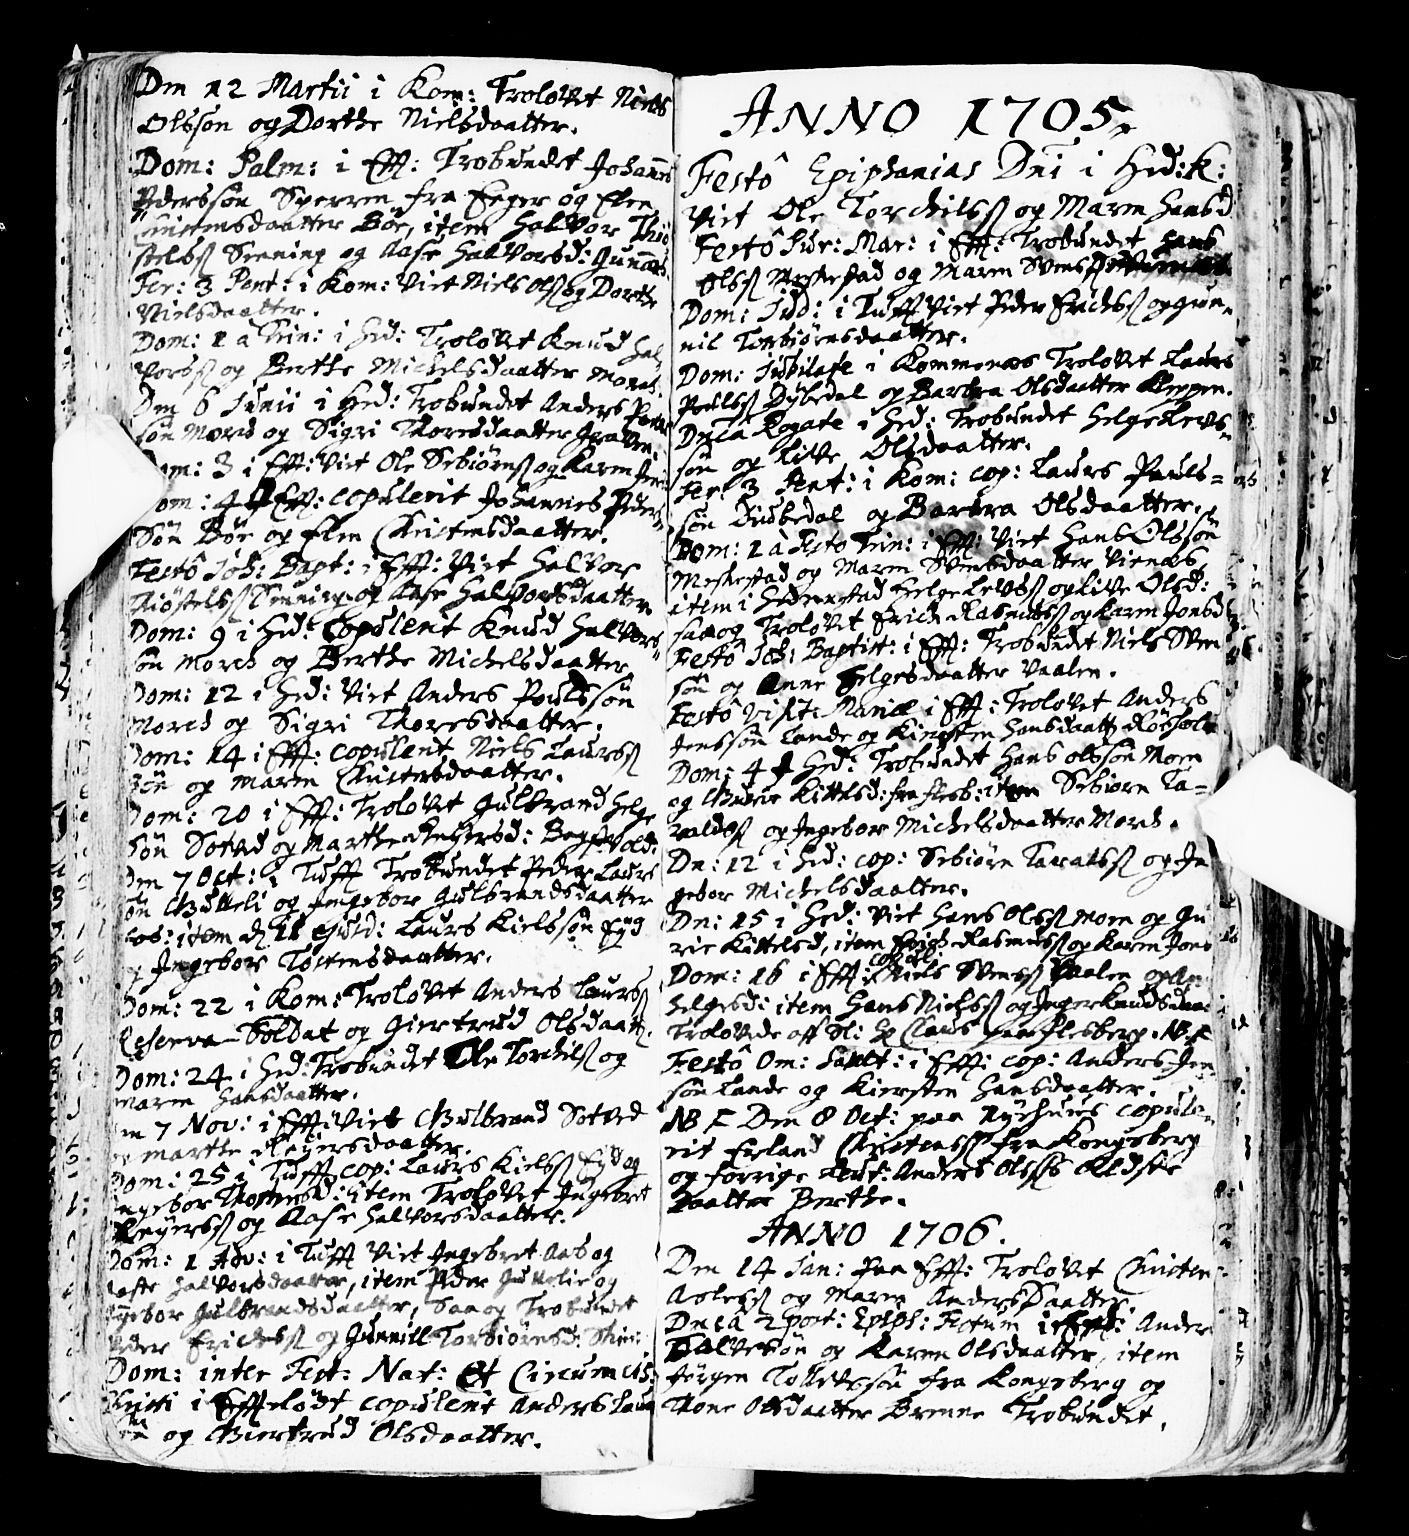 Den 12 Martii i Kom: Trolovet Niels
Olsson og Dorthe Nielsdaatter.
Dom: Palm: i Eff: Trobundet Johannes
Pedersøn Sperren fra Eger og Elen
Christensdaatter Bøe, item Halvor Thiø
stelsß Senning og Aase Halvorsd: Gunnes
Fer: 3 Pent: i Kom: Viet Niels Olsß og Dorthe
Nielsdaatter.
Dom: 1 a Trin: i Hed: Trolovet Knud Hal
vorsß og Berthe Michelsdaatter Morch.
Den 6 Junii i Hed: Trobundet Anders Povels
søn Morch og Sigri Thoresdaatter
Dom: 3 i Eff: Viet Ole Sebiørnsß og Karen
Dom: 4 Eff: copulerit Johannes Peders
Søn Bøe og Elen Christensdaatter.
Festo Joh: Bapt: i Eff: Viet Halvor
Thiøstelsß Senning og Aase Halvorsdaatter
Dom: 9 i Hed: Copulerit Knud Halvors
søn Morch og Berthe Michelsdaatter
Dom: 12 i Hed: Viet Anders Poulssøn
Morch og Sigri Thoresdaatter.
Dom: 14 i Eff: copulerit Niels Laursß
søn og Maren Christensdaatter.
Dom: 20 i Eff: Trolovet Gulbrand Helge
søn Sotved og Marthe Reyersd:
Den 7 Oct: i Tuft Trobundet Peder Laurs
søn Gulleli og Ingebor Gulbrandsdaatter
item d 18 Laurs Kielssøn Eyd
og Ingebor Tostensdaatter.
Dom: 22 i Kom: Trolovet Anders Laursß
Reserve Soldat og Giertrud Olsdaatt.
Dom: 24 i Hed: Trobundet Ole Torchelsß og
Maren Hansdaatter.
Den 7 Nov: i Eff: Viet Gulbrand Sotved
og Marthe Reyersdaatter.
Dom: 25 i Tufft cop: Laurs Kielsß Eyd og
Ingebor Item Trolovet Ingebret
Reyersß og Aase Halvorsdaatter.
Dom: 1 Adv: i Tufft Viet Ingebret Aas og
Aase Halvorsdaatter, item Peder Gullelie og
Ingebor Gulbrandsdaatter, Saa og Trobundet
Peder Erichsß og Gunnill Torbiørnsd:
Dom: inter Fest: Nat: et Circumcis:
Christi i Effteløst copulerit Anders Laurs
søn og Giertrud Olsdaatter.
ANNO 1705.
Festô Epiphanias Dni i Hed: K:
Viet Ole Torchilsß og Maren Hansd
Festô Pur: Mar: i Eff: Trobundet Hans
Olsß Meskestad og Maren Svens
Dom: Jud: i Tufft Viet Peder Erichsß og Gun
nil Torbiørnsdaatter.
Dom: Jubilate i Kommenæs Trolovet Laurs
Poulsß Dybedal og Barbra Olsdaatter Kleppen.
Dnca Rogate i Hed: Trobundet Helge Levs
søn og Live Olsdaatter.
Fer: 3 Pent: i Kom: cop: Laurs Pauls=
søn Diubedal og Barbra Olsdaatter.
Dom: 1 a Festo Trin: i Eff: Viet Hans Olssøn
Meskestad og Maren Svensdaatter Vienæs,
item i Hedenstad Helge Levsß og Live Olsd:
saa og Trolovet Erich Rasmusß og Karen Jonsd
Festô Joh: Baptist: i Eff: Trobundet Niels Sven
søn og Anne Helgesdaatter Vaalen.
Festô Visit: Mariæ i Eff: Trolovet Anders
Jenssøn Lande og Kiersten Hansdaatt
Dom: 4 i Hed: Trobundet Hans Olssøn Moen
og Gurie Kittelsd: fra Flesb: item Sebiørn Ta=
raldsß og Ingebor Michelsdaatter Morch.
Dn: 12 i Hed: cop: Sebiørn Taraldsß og In
gebor Michelsdaatter.
Dn: 15 i Hed: Viet Hans Olsß Moen og Gu
rie Kittelsd, item Erich Rasmusß og Karen Jons
Dom: 16 i Eff: copuli: Niels Svensß Vaalen og An:
Helgesd: item Hans Nielsß og Inger Knudsdaat
Trolovede aff Sl: Hr Claus paa Flesberg. NB F
Festô Om: Sanct: i Eff: cop: Anders Jen
søn Lande og Kiersten Hansdaatter.
NB F Den 8 Oct: paa Nyehuus copule
rit Erland Christensß fra Kongsberg
og forrige Leut: Anders Olsßs Eldste
Daatter Berthe.
ANNO 1706.
Den 14 Jan: Paa Eff: Trolovet Christen
Aslesß og Maren AndersDaatter.
Dncâ 2 post: Epiph: Festum i Eff: Anders
Halversøn og Karen Olsdaatter, item
Jørgen Tollefsøn fra Kongsberg og
Thone Olsdaatter Brenne Trobundet.